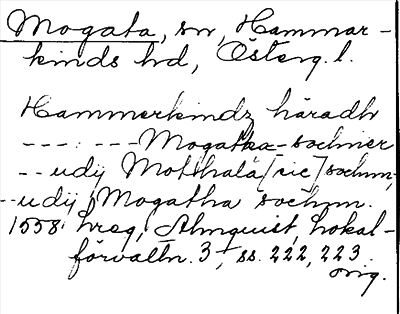 Mogata, sn, Hammar-
kinds hd, Österg. l.
Hammerkindz häradh
---:---Mogatka-sochner
--udij Motthala [sic] sochnn,
--udij Mogatha sochnn.
1558 hreg, Almquist, Lokal-
förvaltn. 3, ss. 222, 223
orig.